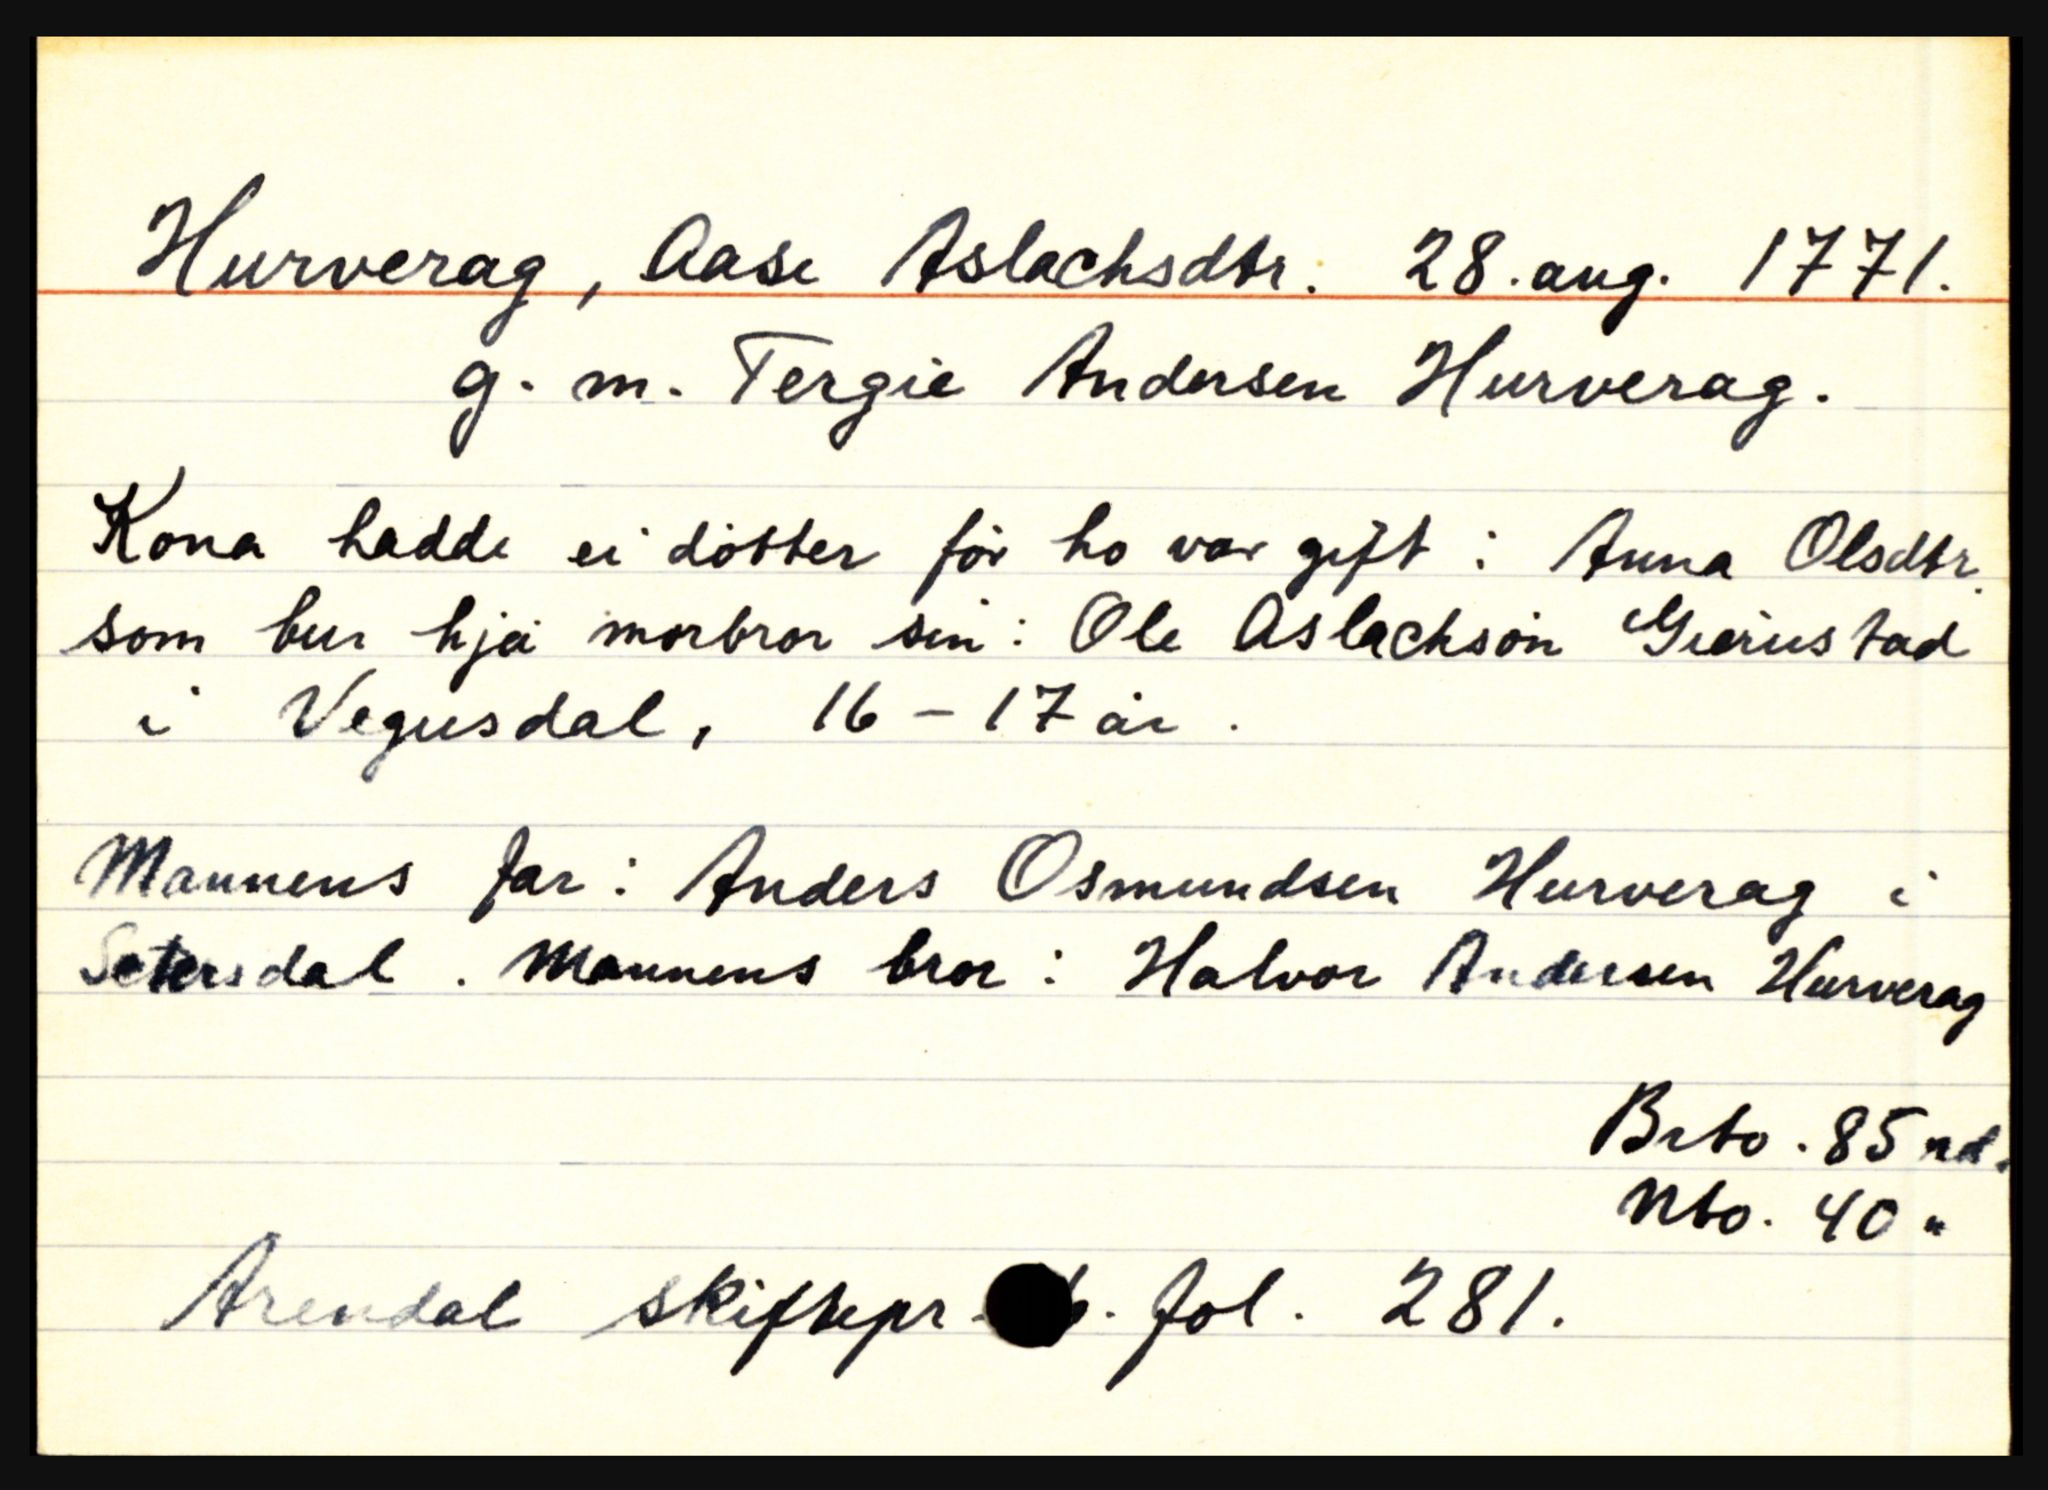 Hurverag, Aase Aslachsdtr. 28. aug. 1771.
g. m. Tergie Andersen Hurverag.
Kona hadde ei dotter för ho var gift: Anna Olsdtr.
som bur hjå morbror sin: Ole Aslachsön
i Vegusdal, 16-17 år.
Mannens far: Anders Osmundsen Hurverag i
Setersdal. Mannens bror: Halvor Andersen Hurverag
Brto. 85 rd.
Nto. 40 "
Arendal skiftepr. fol. 281.